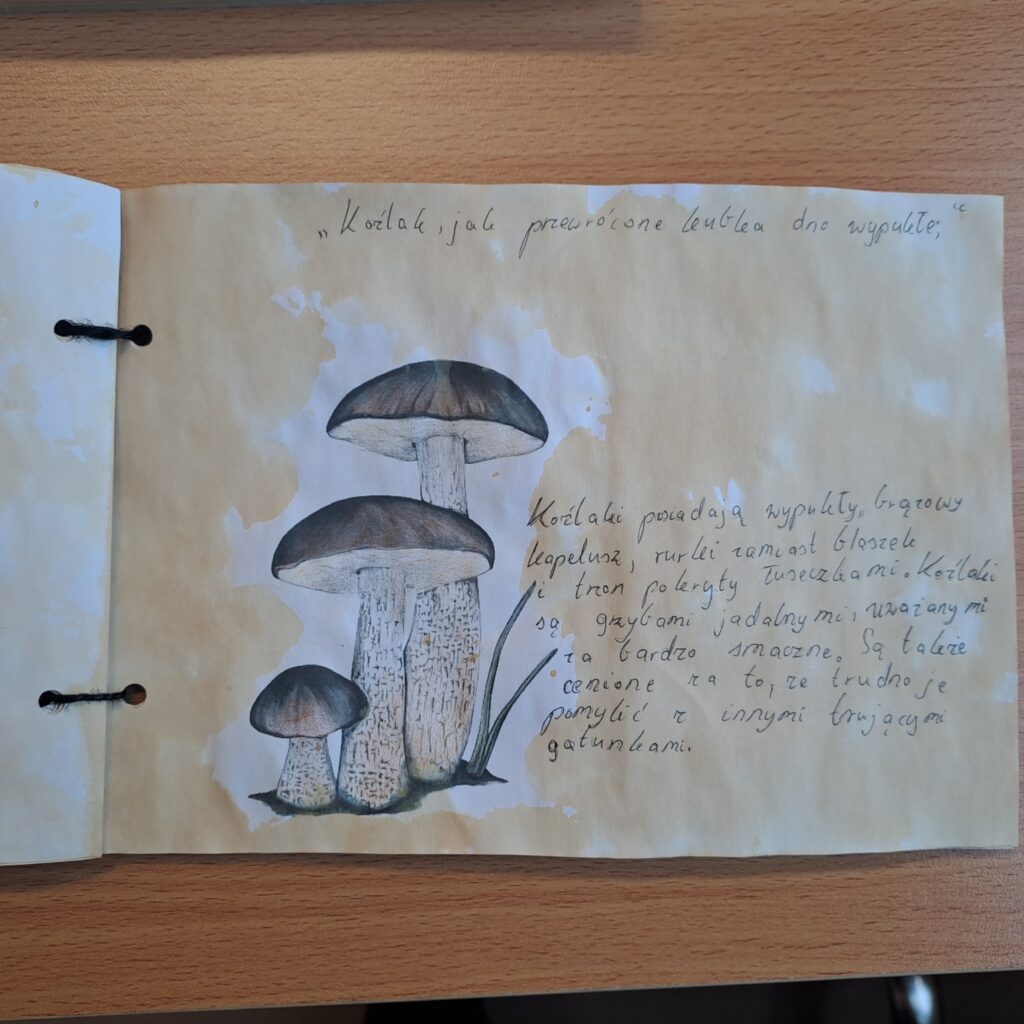 „Koźlak, jak przewrócone kubka dno wypukłe;“
Koźlaki posiadają wypukły, brązowy
kapelusz, rurki zamiast blaszek
i trzon pokryty łuseczkami. Koźlaki
są grzybami jadalnymi, uważanymi
za bardzo smaczne. Są także
cenione za to, że trudno je
pomylić z innymi trującymi
gatunkami.